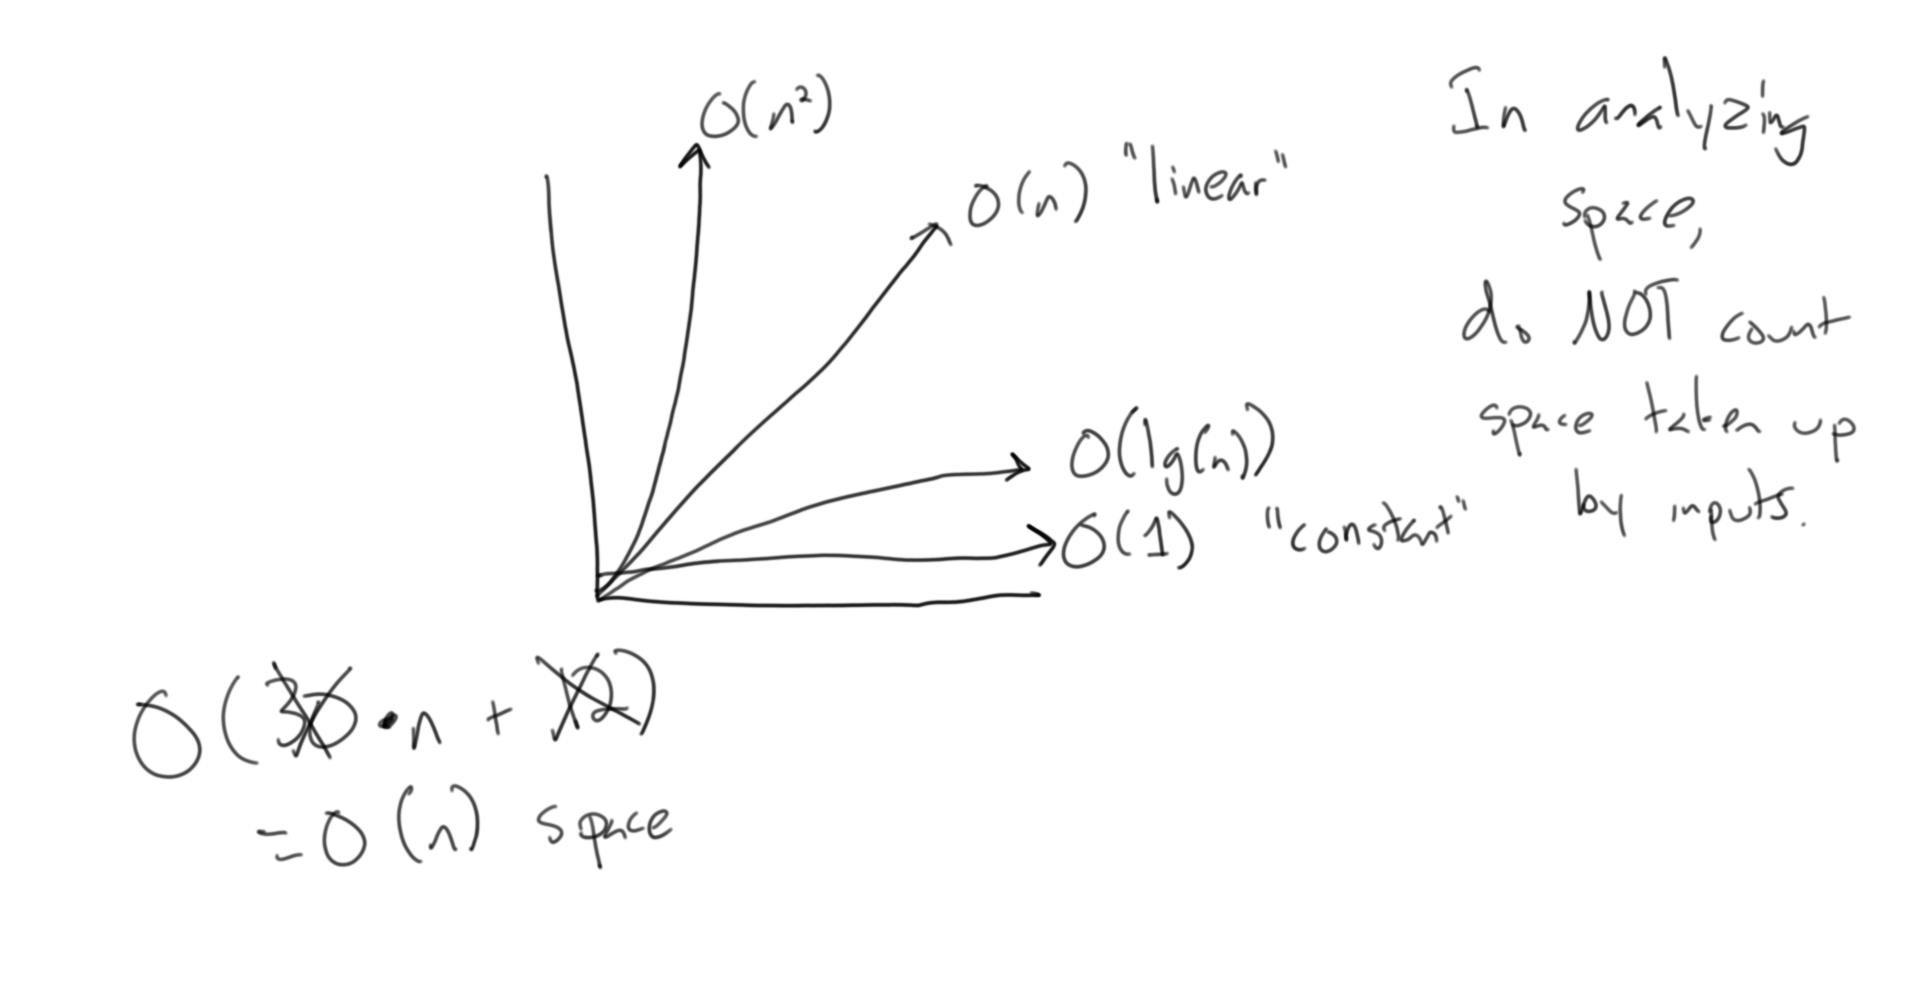 O(n²)
O(n) "linear"
O(lg(n))
O(1) "constant"
In analyzing
space,
do NOT count
space taken up
by inputs.
O(30 • n + 12)
= O(n) space